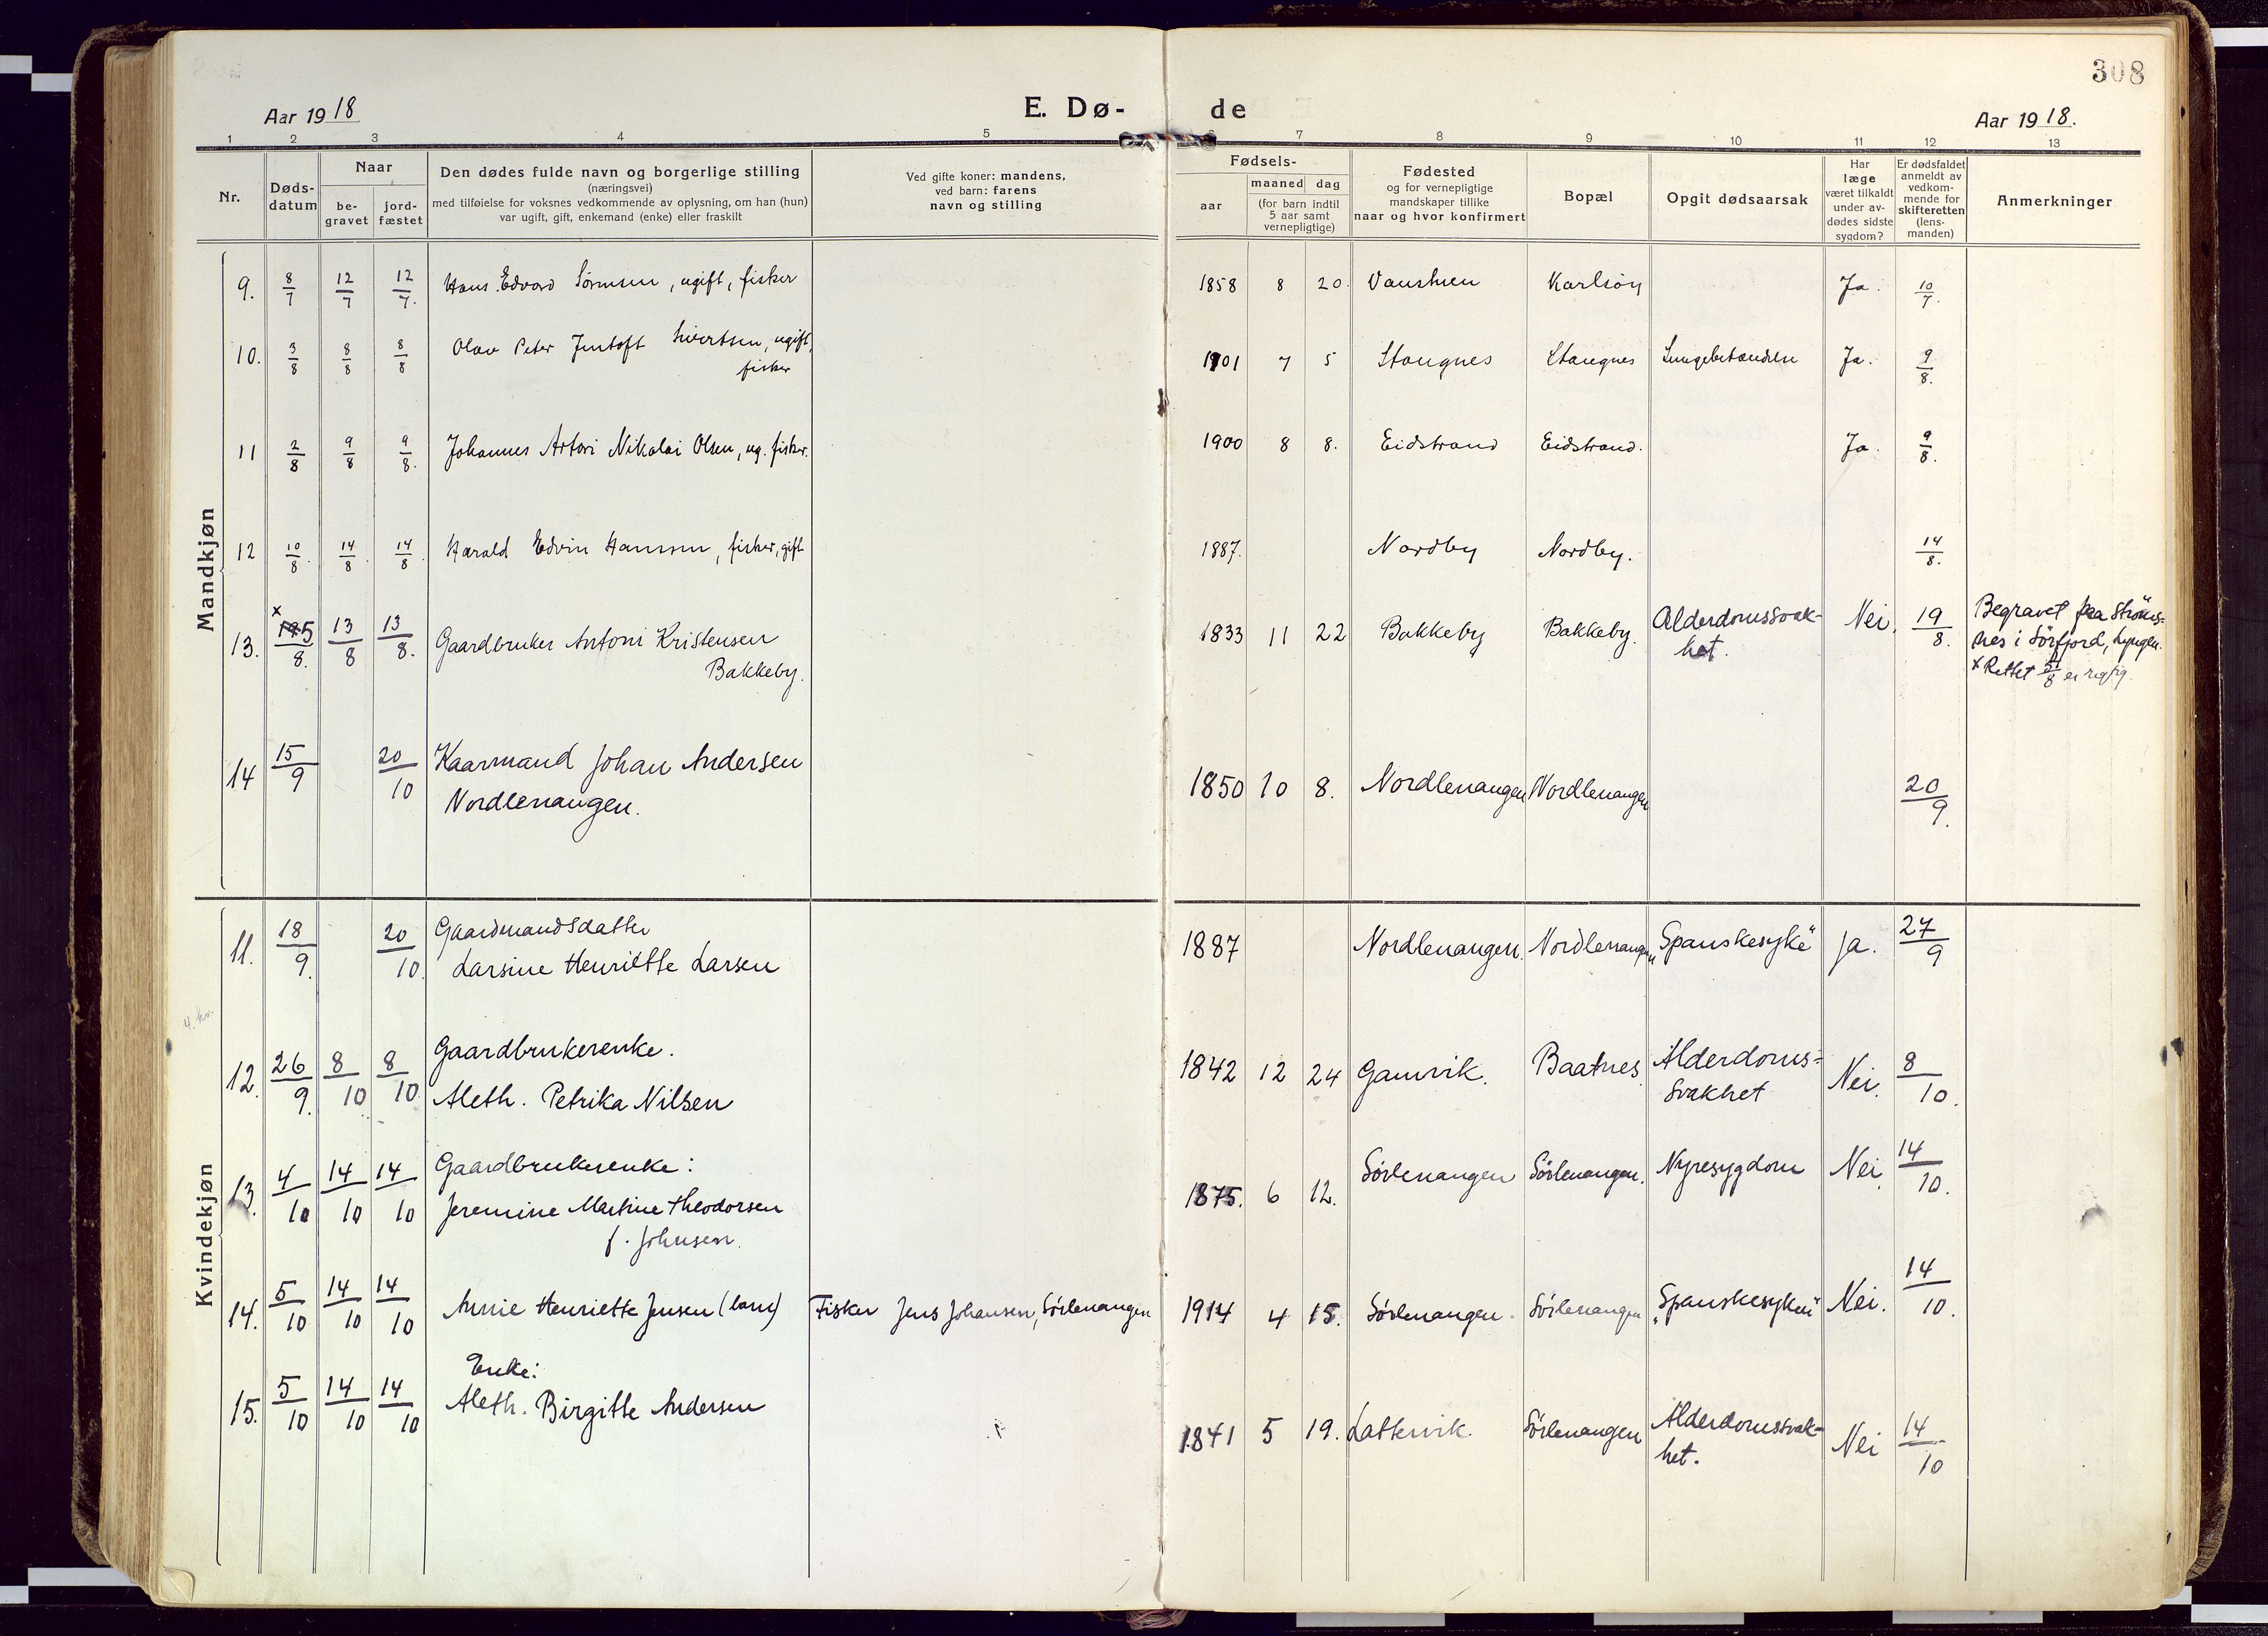 308
Aar 1918
E. Dø-
de
Aar 1918.
1 2 3 4 5 6 7 8 9 10 11 12 13
Nr.
Døds-
datum
Naar
be-
gravet
jord-
fæstet
Den dødes fulde navn og borgerlige stilling
(næringsvei)
med tilføielse for voksnes vedkommende av oplysning, om han (hun)
var ugift, gift, enkemand (enke) eller fraskilt
Ved gifte koner: mandens,
ved barn: farens
navn og stilling
Fødsels-
aar
maaned dag
(for barn indtil
5 aar samt
vernepligtige)
Fødested
og for vernepligtige
mandskaper tillike
naar og hvor konfirmert
Bopæl
Opgit dødsaarsak
Har
læge
været tilkaldt
under av-
dødes sidste
sygdom?
Er dødsfaldet
anmeldt av
vedkom-
mende for
skifteretten
(lens-
manden)
Anmerkninger
Mandkjøn
9. 8/7 12/7 12/7. Hans Edvard Sörensen, ugift, fisker 1858 8 20. Karlsöy Ja. 10/7.
10. 3/8 8/8 8/8 Olav Peter Jentoft Sivertsen, ugift,
fisker
1901 7 5 Stangnes Stangnes Lungebetændelse Ja. 9/8.
11 2/8 9/8 9/8. Johannes Artori Nikolai Olsen, ug. fisker. 1900 8 8. Eidstrand Eidstrand. Ja. 9/8.
12 10/8. 14/8. 14/8. Harald Edvin Hanssen, fisker, gift 1887. Nordby Nordby. 14/8.
13. x 5/8. 13/8 13/8. Gaardbruker Antoni Kristensen
Bakkeby.
1833 11 22 Bakkeby Bakkeby. Alderdomssvak-
het.
Nei. 19/8.
Begravet paa Ströms-
nes i Sörfjord, Lyngen.
x Rettet 5/8 er rigtig.
14 15/9 20/10 Kaarmand Johan Andersen
Nordlenangen.
1850 10 8. Nordlenangen Nordlenangen 20/9.
Kvindekjøn
11. 18/9. 20/10. Gaardmandsdatter
Larsine Henriette Larsen
1887 Nordlenangen. Nordlenangen "Spanskesyke" Ja. 27/9
4. kv.
12. 26/9. 8/10 8/10. Gaardbrukerenke.
Aleth. Petrika Nilsen
1842 12 24 Gamvik. Baatnes Alderdoms-
svakhet
Nei. 8/10.
13. 4/10 14/10 14/10 Gaardbrukerenke:
Jeremine Martine Theodorsen
f. Johnsen.
1875. 6 12. Sörlenangen Sörlenangen. Nyresygdom Nei. 14/10.
14. 5/10 14/10 14/10 Annie Henriette Jensen (barn) Fisker Jens Johansen, Sörlenangen 1914 4 15. Sörlenangen. Sörlenangen "Spanskesyken" Nei. 14/10.
15. 5/10 14/10 14/10 Enke:
Aleth. Birgitte Andersen
1841 5 19. Lattervik. Sörlenangen Alderdomssvak-
het.
Nei 14/10